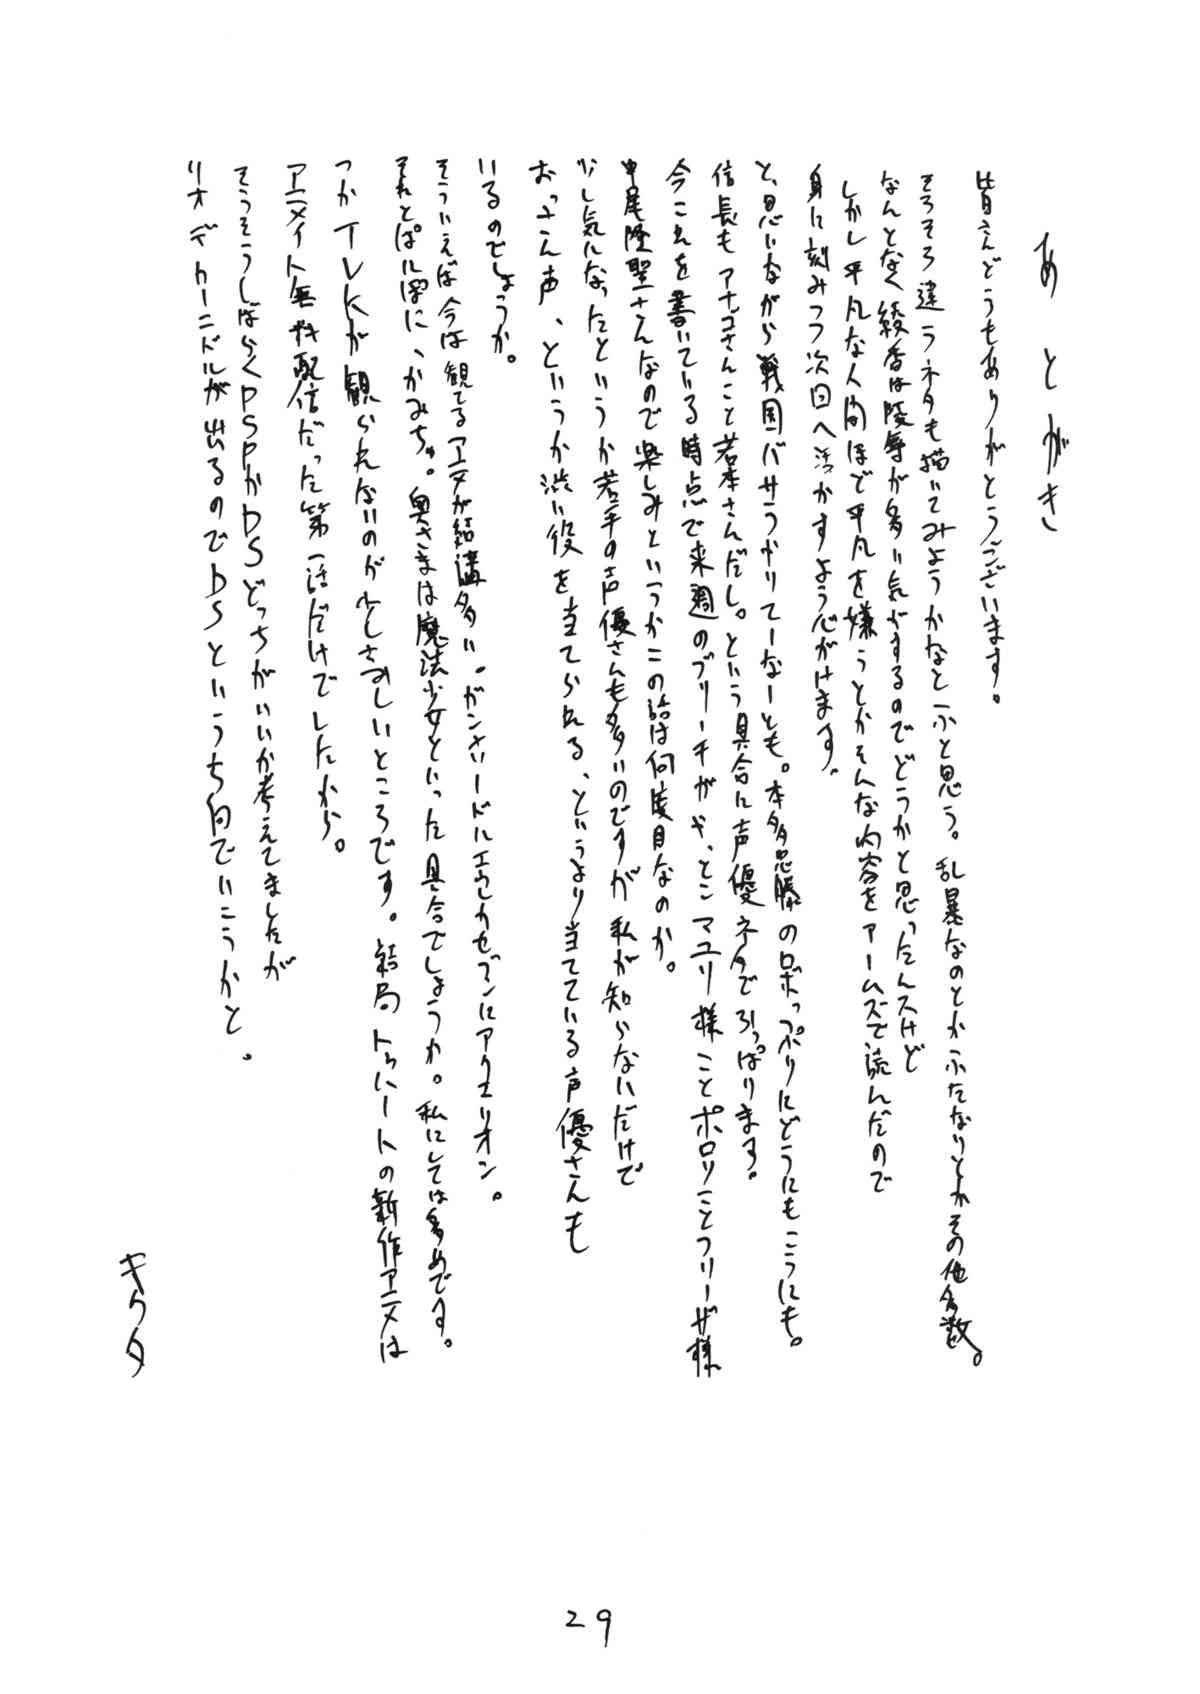 あとがき
皆さんどうもありがとうございます。
そろそろ違うネタも描いてみようかなとふと思う。乱暴なのとかふたなりとかその他多数。
なんとなく綾香は陵辱が多い気がするのでどうかと思ったんスけど
しかし平凡な人間ほど平凡を嫌うとかそんな内容をアームズで読んだので
身に刻みつつ次回へ活かすよう心がけます。
と、思いながら戦国バサラやりてーなーとも。本多忠勝のロボっぷりにどうにもこうにも。
信長もアナゴさんこと若本さんだし。という具合に声優ネタで引っぱります。
今これを書いている時点で来週のブリーチがや、とこマユリ様ことポロリことフリーザ様
中尾隆聖さんなので楽しみというかこの話は何度目なのか。
少し気になったというか若手の声優さんも多いのですが私が知らないだけで
おっさん声、というか渋い役を当てられる、というより当てている声優さんも
いるのでしょうか。
そういえば今は観てるアニメが結構多い。ガンソードにエウレカセブンにアクエリオン。
それとぱにぽに、かみちゅ。奥さまは魔法少女といった具合でしょうか。私にしては多めです。
つかTVKが観られないのが少しさみしいところです。結局トゥハートの新作アニメは
アニメイト無料配信だった第一話だけでしたから。
そうそうしばらくPSPかDSどっちがいいか考えてましたが
リオデカーニバルが出るのでDSといううち向でいこうかと。
キクタ
29